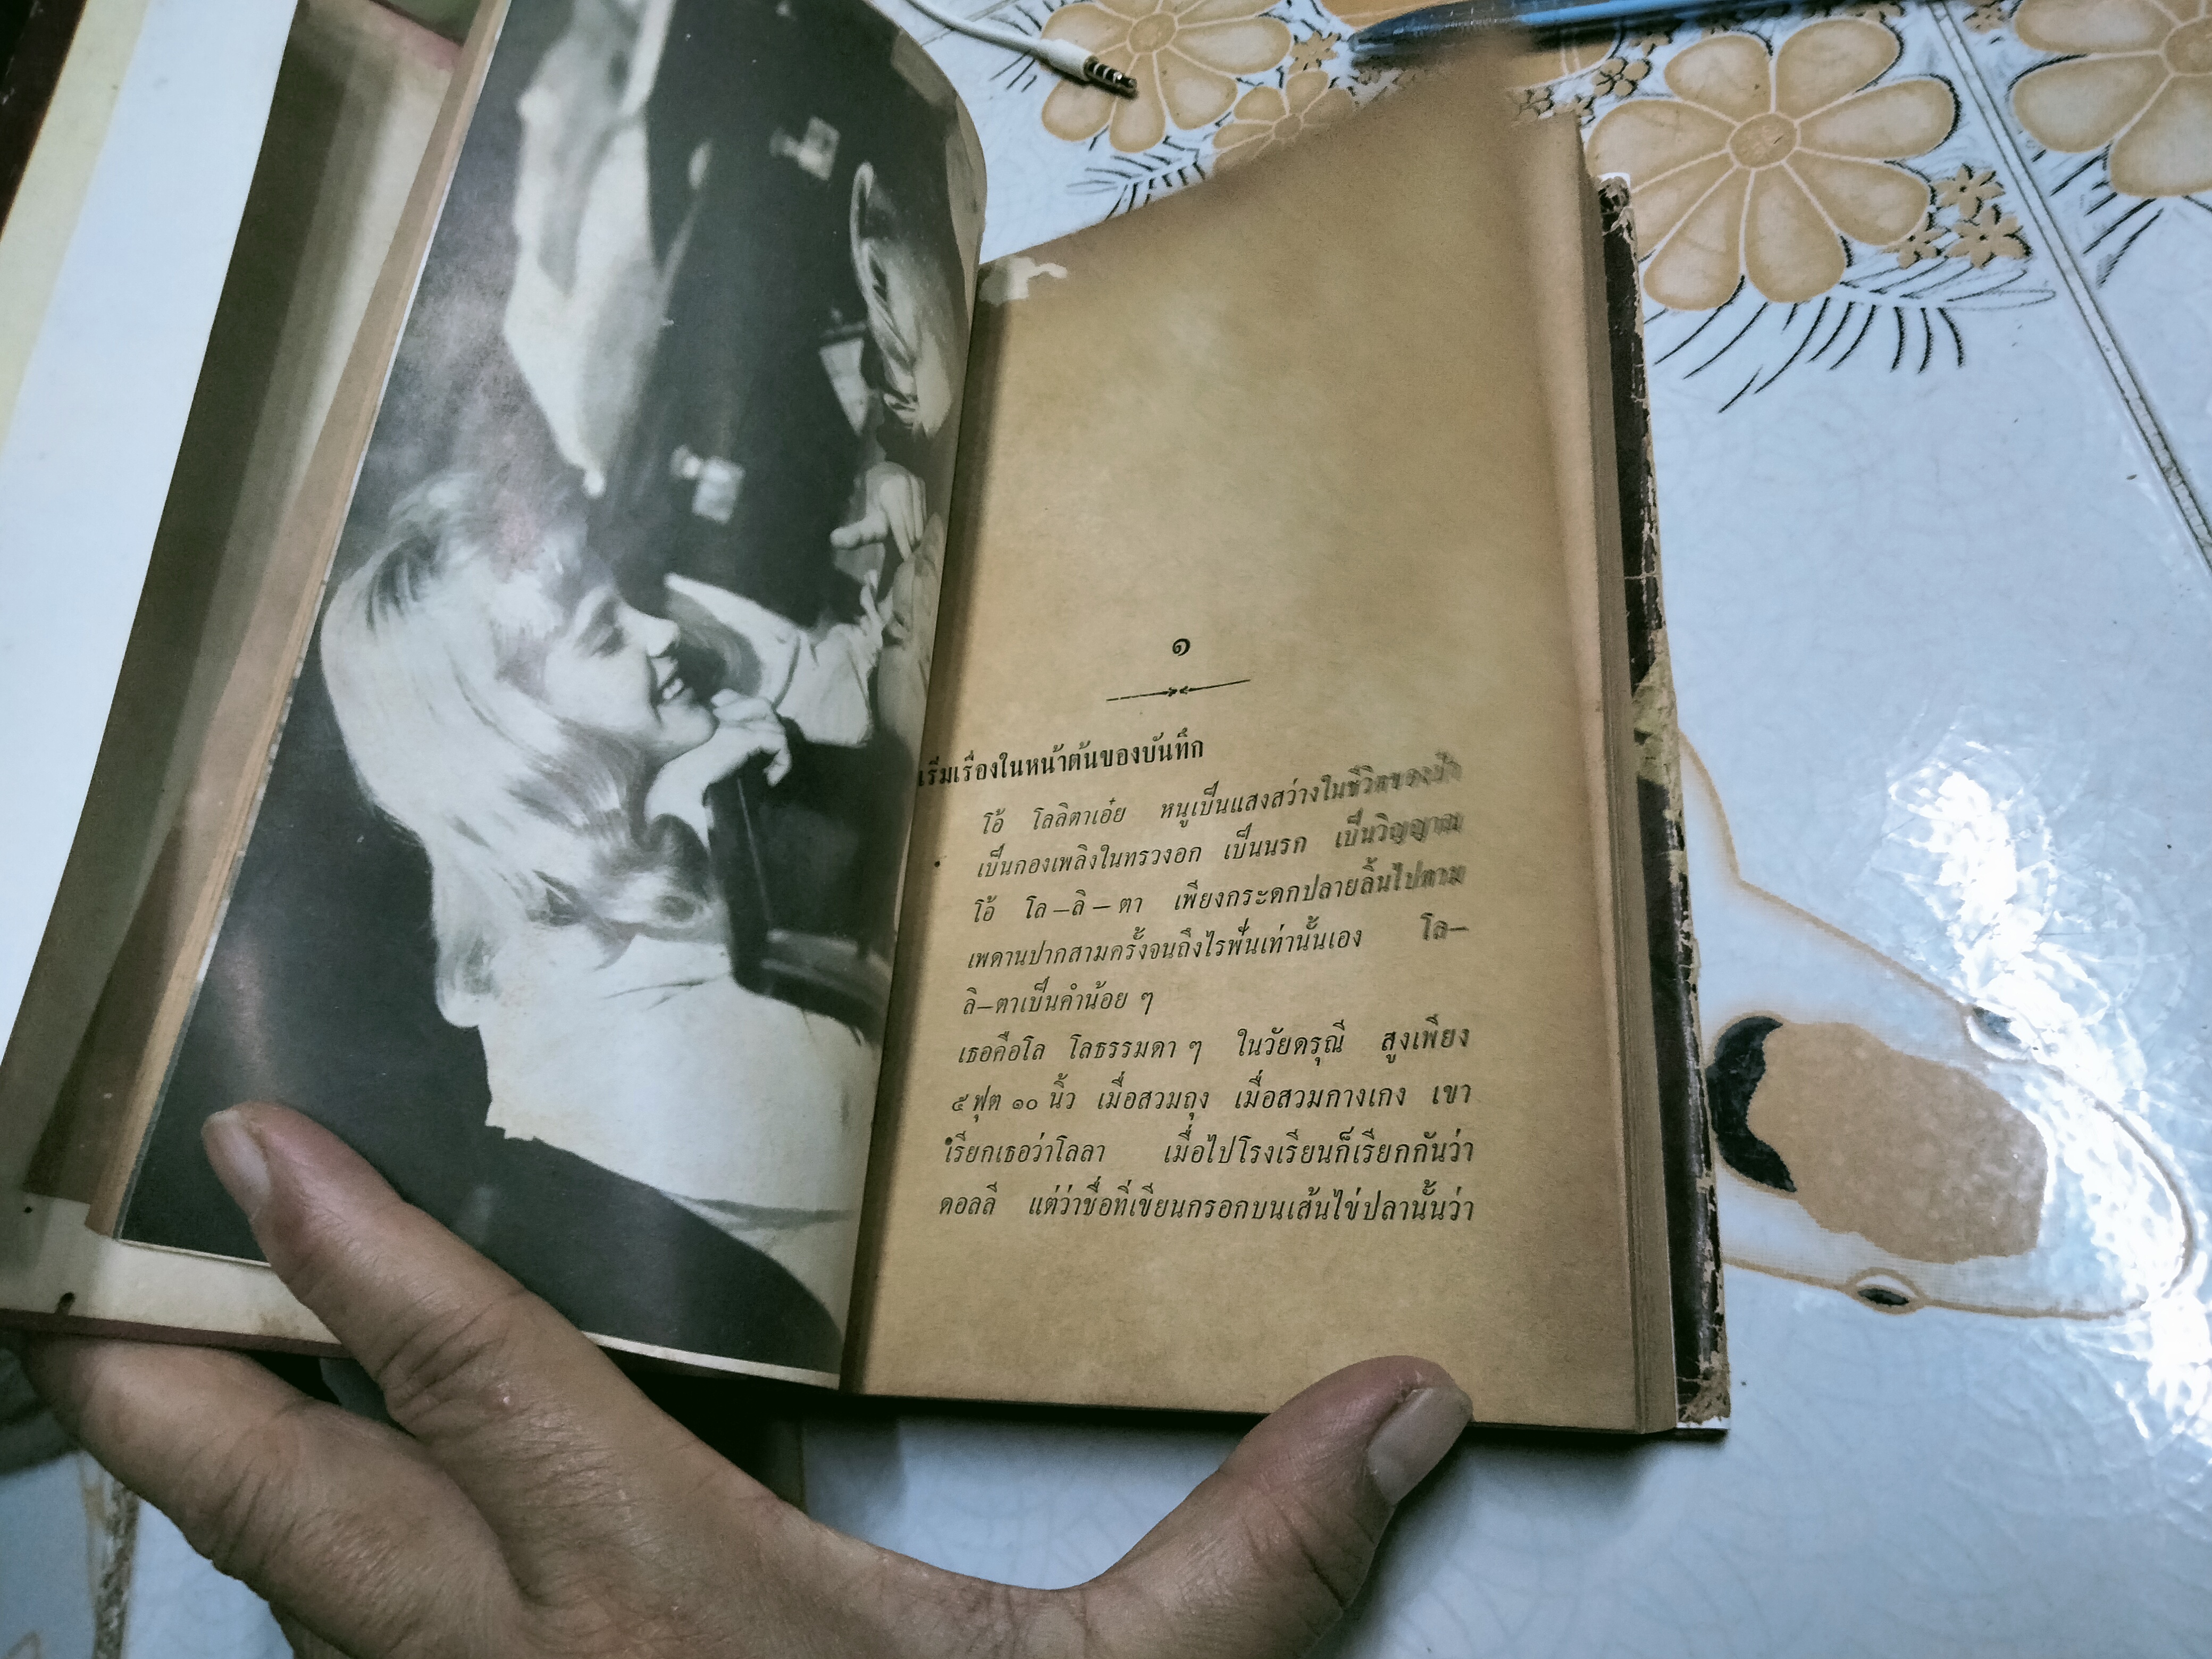 ๑
เริ่มเรื่องในหน้าต้นของบันทึก
โอ้ โลลิตาเอ๋ย หนูเป็นแสงสว่างในชีวิตของ
เป็นกองเพลิงในทรวงอก เป็นนรก เป็นวิญญาณ
โอ้ โล—ลิ—ตา เพียงกระดกปลายลิ้นไปตาม
เพดานปากสามครั้งจนถึงไรฟันเท่านั้นเอง โล—
ลิ—ตาเป็นคำน้อย ๆ
เธอคือโล โลธรรมดา ๆ ในวัยดรุณี สูงเพียง
๕ ฟุต ๑๐ นิ้ว เมื่อสวมถุง เมื่อสวมกางเกง เขา
เรียกเธอว่าโลลา เมื่อไปโรงเรียนก็เรียกกันว่า
ดอลลี แต่ว่าชื่อที่เขียนกรอกบนเส้นไข่ปลานั้นว่า